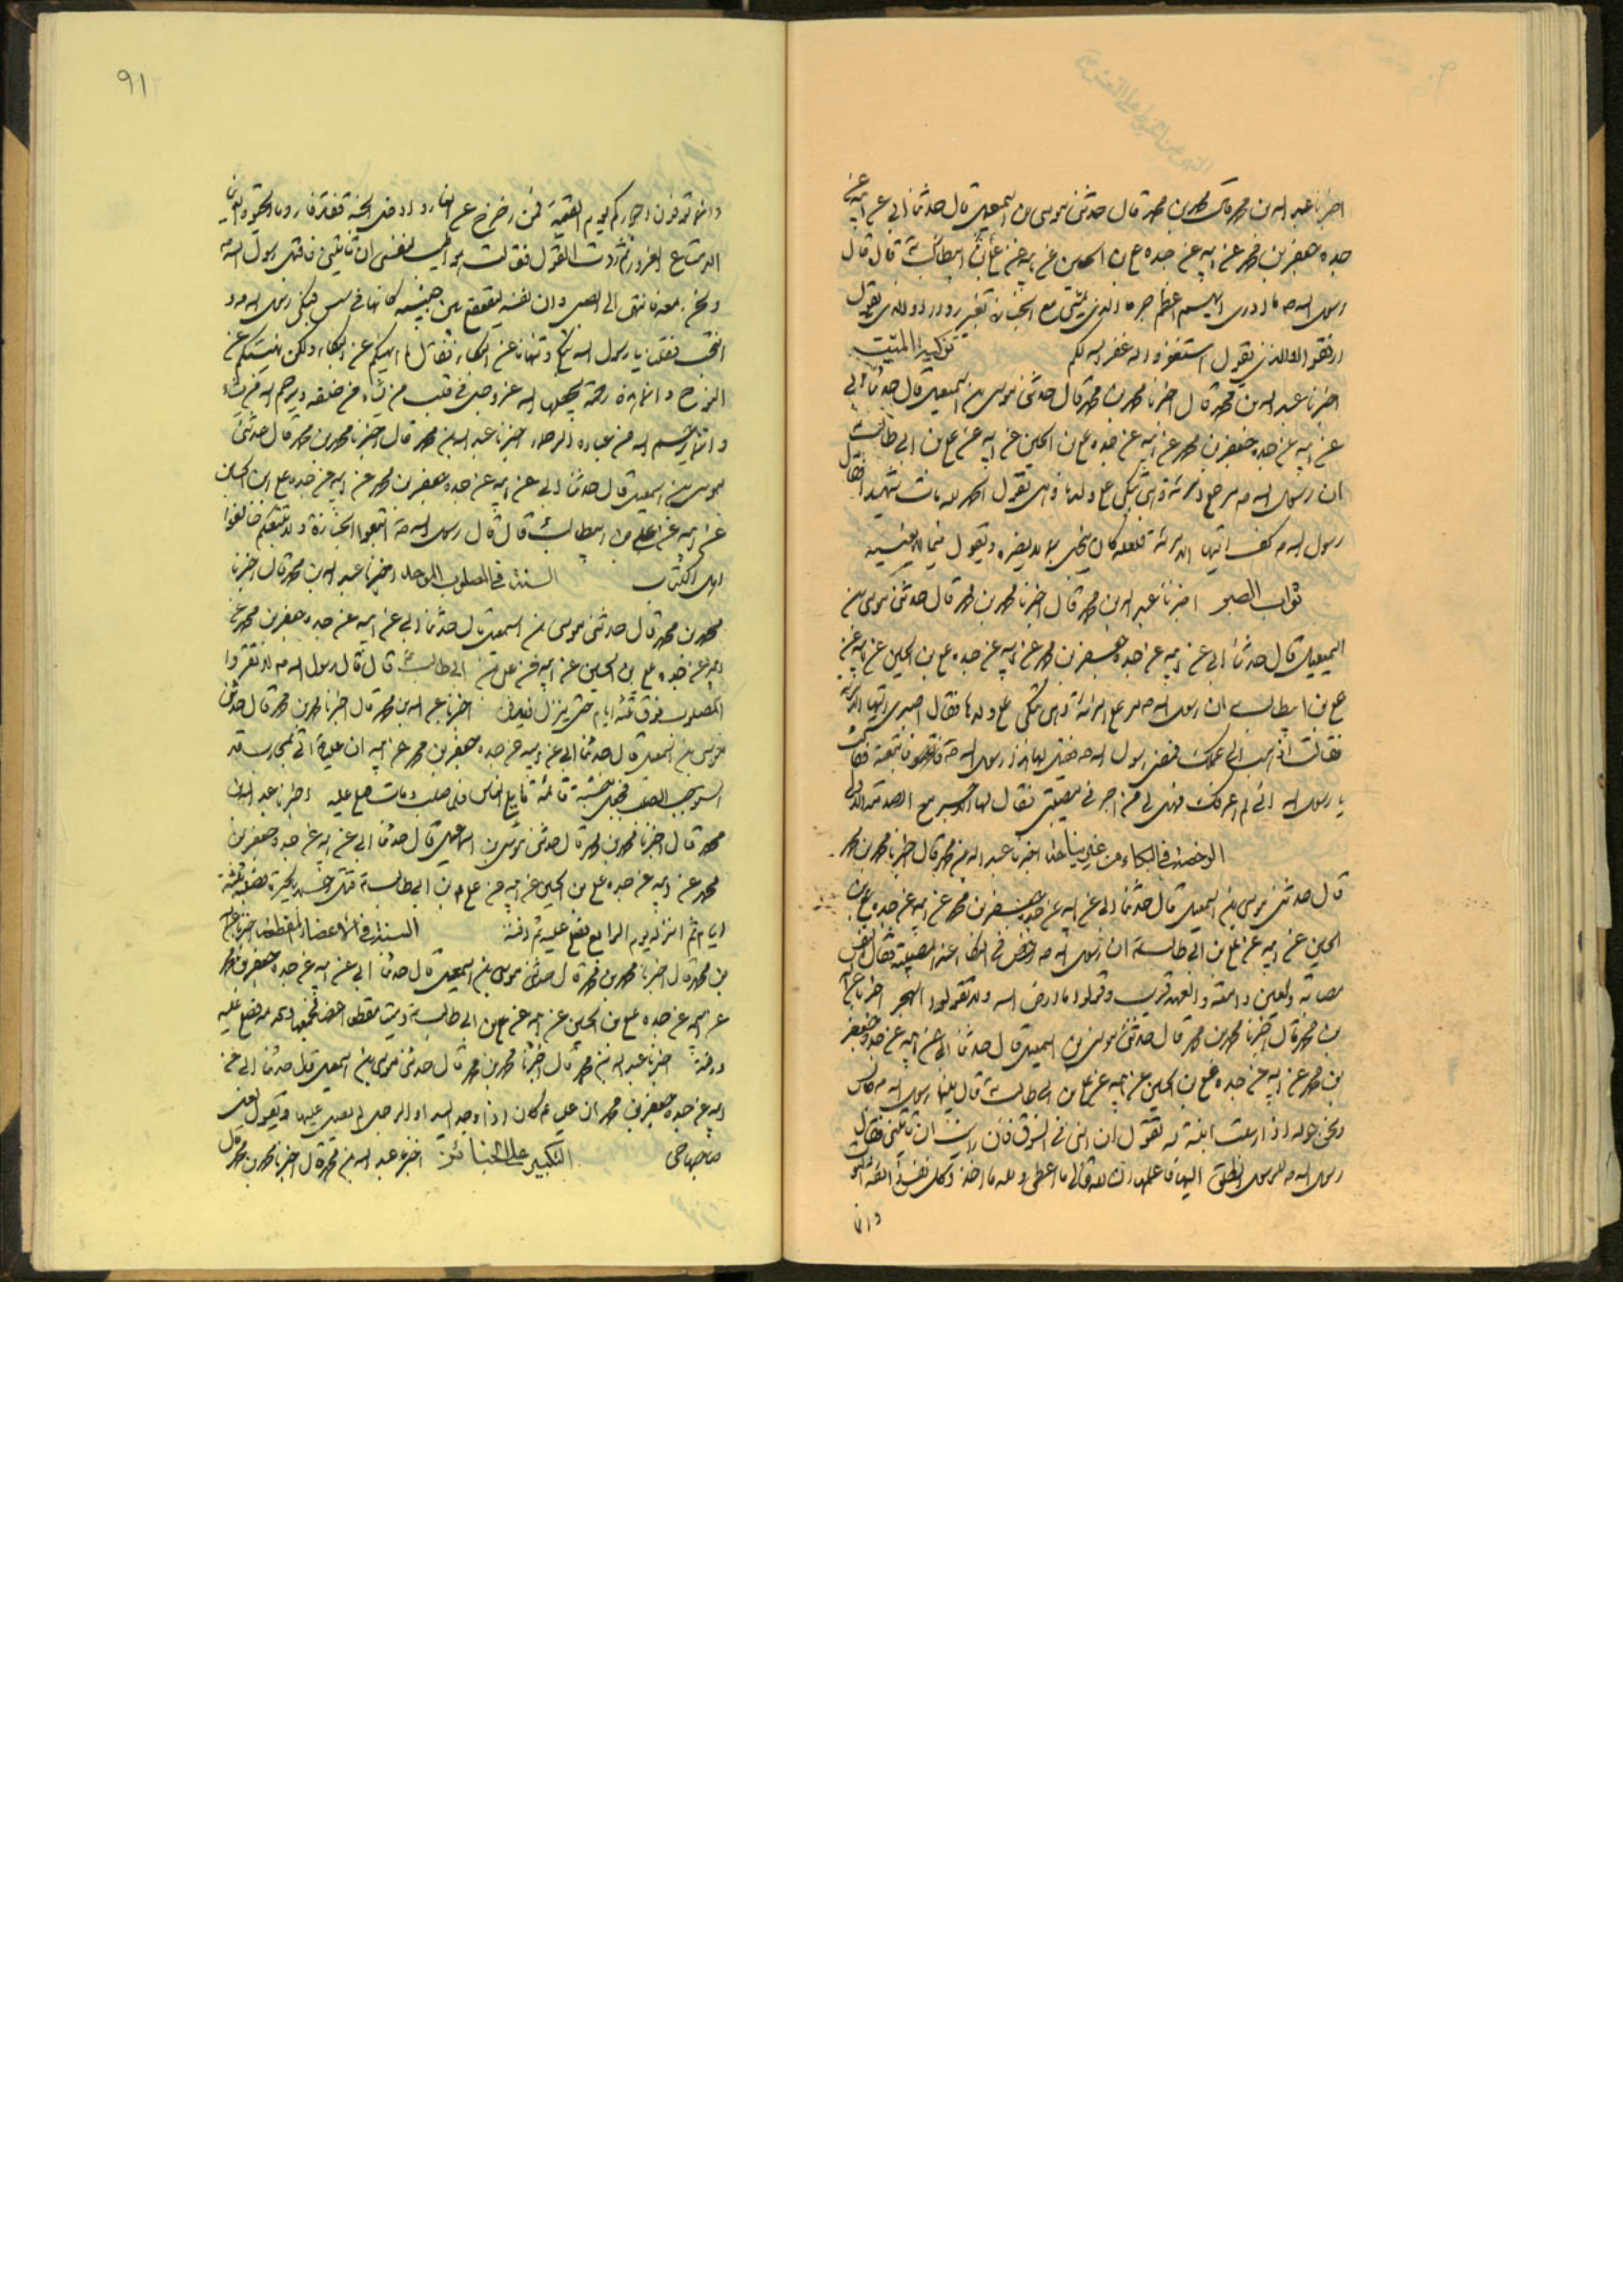 اخبرنا عبد الله بن محمد قال محمد بن محمد قال حدثنى موسى بن اسمعيل قال حدثنا ابى عن ابيه عن
جده جعفر بن محمد عن ابيه عن جده على بن الحسين عن ابيه عن على بن ابيطالب قال قال
رسول الله ما ادرى ايهم اعظم جرما الذى يمشى مع الجنازة بغير رداء او الذى يقول
ارفقوا او الذى يقول استغفروا له غفر الله لكم تزكية الميت
اخبرنا عبد الله بن محمد قال اخبرنا محمد بن محمد قال حدثنى موسى بن اسمعيل قال حدثنا ابى
عن ابيه عن جده جعفر بن محمد عن ابيه عن جده على بن الحسين عن ابيه عن على بن ابى طالب
ان رسول الله مر على امرئة وهى تبكى على ولدها وهى تقول الحمد لله مات شهيدا فقال
رسول الله كفى ايتها الامرئة فلعله كان يبخل بما لا يضره ويقول فيما لا يعنيه
ثواب الصبر اخبرنا عبد الله بن محمد قال اخبرنا محمد بن محمد قال حدثنى موسى بن
اسمعيل قال حدثنا ابى عن ابيه عن جده جعفر بن محمد عن ابيه عن جده على بن الحسين عن ابيه عن
على بن ابيطالب ان رسول الله مر على امرئة وهى تبكى على ولدها فقال اصبرى ايتها الامرئة
فقالت اذهب الى عملك فمضى رسول الله فقيل لها هذا رسول الله فاتبعته فقالت
يا رسول الله انى لم اعرفك فهل لى من اجر فى مصيبتى فقال لها الاجر مع الصدمة الاولى
الرخصة فى البكاء من غير نياحة اخبرنا عبد الله بن محمد قال اخبرنا محمد بن محمد
قال حدثنى موسى بن اسمعيل قال حدثنا ابى عن ابيه عن جده جعفر بن محمد عن ابيه عن جده على بن
الحسين عن ابيه عن على بن ابى طالب ان رسول الله رخص فى البكاء عند المصيبة فقال النفس
مصابة والعين دامعة والعهد قريب وقولوا ما ارضى الله ولا تقولوا الهجر اخبرنا عبد الله
بن محمد قال اخبرنا محمد بن محمد قال حدثنى موسى بن اسمعيل قال حدثنا ابى عن ابيه عن جده جعفر
بن محمد عن ابيه عن جده على بن الحسين عن ابيه عن على بن ابى طالب قال بينا رسول الله
ونحن حوله اذ ارسلت ابنة له تقول ان ابنى فى السوق فان رايت ان تاتينى فقال
رسول الله للرسول انطلق اليها فاعلمها ان لله تعالى ما اعطى ولله ما اخذ وكل نفس ذائقة الموت
وانما
٩١
وانما توفون اجوركم يوم القيمة فمن زحزح عن النار وادخل الجنة فقد فاز وما الحيوة الدنيا
الا متاع الغرور ثم ردت القول فقالت هو اطيب لنفسى ان تاتينى فاقبل رسول الله
ونحن معه فانتهى الى الصبى وان نفسه ليقعقع بين جنبيه كانها فى شن فبكى رسول الله و
انتحب فقلنا يا رسول الله تبكى وتنهانا عن البكاء فقال لم انهكم عن البكاء ولكن نهيتكم عن
النوح وانما هذه رحمة يجعلها الله عز وجل فى قلب من يشاء من خلقه ويرحم الله من يشاء
وانما يرحم الله من عباده الرحماء اخبرنا عبد الله بن محمد قال اخبرنا محمد بن محمد قال حدثنى
موسى بن اسمعيل قال حدثنا ابى عن ابيه عن جده جعفر بن محمد عن ابيه عن جده على بن الحسين
عن ابيه عن على بن ابيطالب قال قال رسول الله اتبعوا الجنازة ولا تتبعكم خالفوا
اهل الكتاب السنة فى المصلوب اخبرنا عبد الله بن محمد قال اخبرنا
محمد بن محمد قال حدثنى موسى بن اسمعيل قال حدثنا ابى عن ابيه عن جده جعفر بن محمد عن
ابيه عن جده على بن الحسين عن ابيه عن على بن ابى طالب قال قال رسول الله لا تقروا
المصلوب فوق ثلثة ايام حتى ينزل فيدفن اخبرنا عبد الله بن محمد قال اخبرنا محمد بن محمد قال حدثنى
موسى بن اسمعيل قال حدثنا ابى عن ابيه عن جده جعفر بن محمد عن ابيه ان عليا اتى
فلما صلب ومات صلى عليه اخبرنا عبد الله بن
محمد قال اخبرنا محمد بن محمد قال حدثنى موسى بن اسماعيل قال حدثنا ابى عن ابيه عن جده جعفر بن
محمد عن ابيه عن جده على بن الحسين عن ابيه عن على بن ابى طالب بالحيرة فصلبه ثلثة
ايام ثم انزله يوم الرابع فصلى عليه ثم دفنه السنة فى الاعضاء المقطعة اخبرنا عبد الله
بن محمد قال اخبرنا محمد بن محمد قال حدثنى موسى بن اسمعيل قال حدثنا ابى عن ابيه عن جده جعفر بن محمد
عن ابيه عن جده على بن الحسين عن ابيه عن على بن ابى طالب فصلى عليه
ودفنه اخبرنا عبد الله بن محمد قال اخبرنا محمد بن محمد قال حدثنى موسى بن اسمعيل قال حدثنا ابى عن
ابيه عن جده جعفر بن محمد ان عليا كان اذا وجد اليد او الرجل لم يصل عليها ويقول لعل
صاحبها حى التكبير على الجنائز اخبرنا عبد الله بن محمد قال اخبرنا محمد بن محمد قال